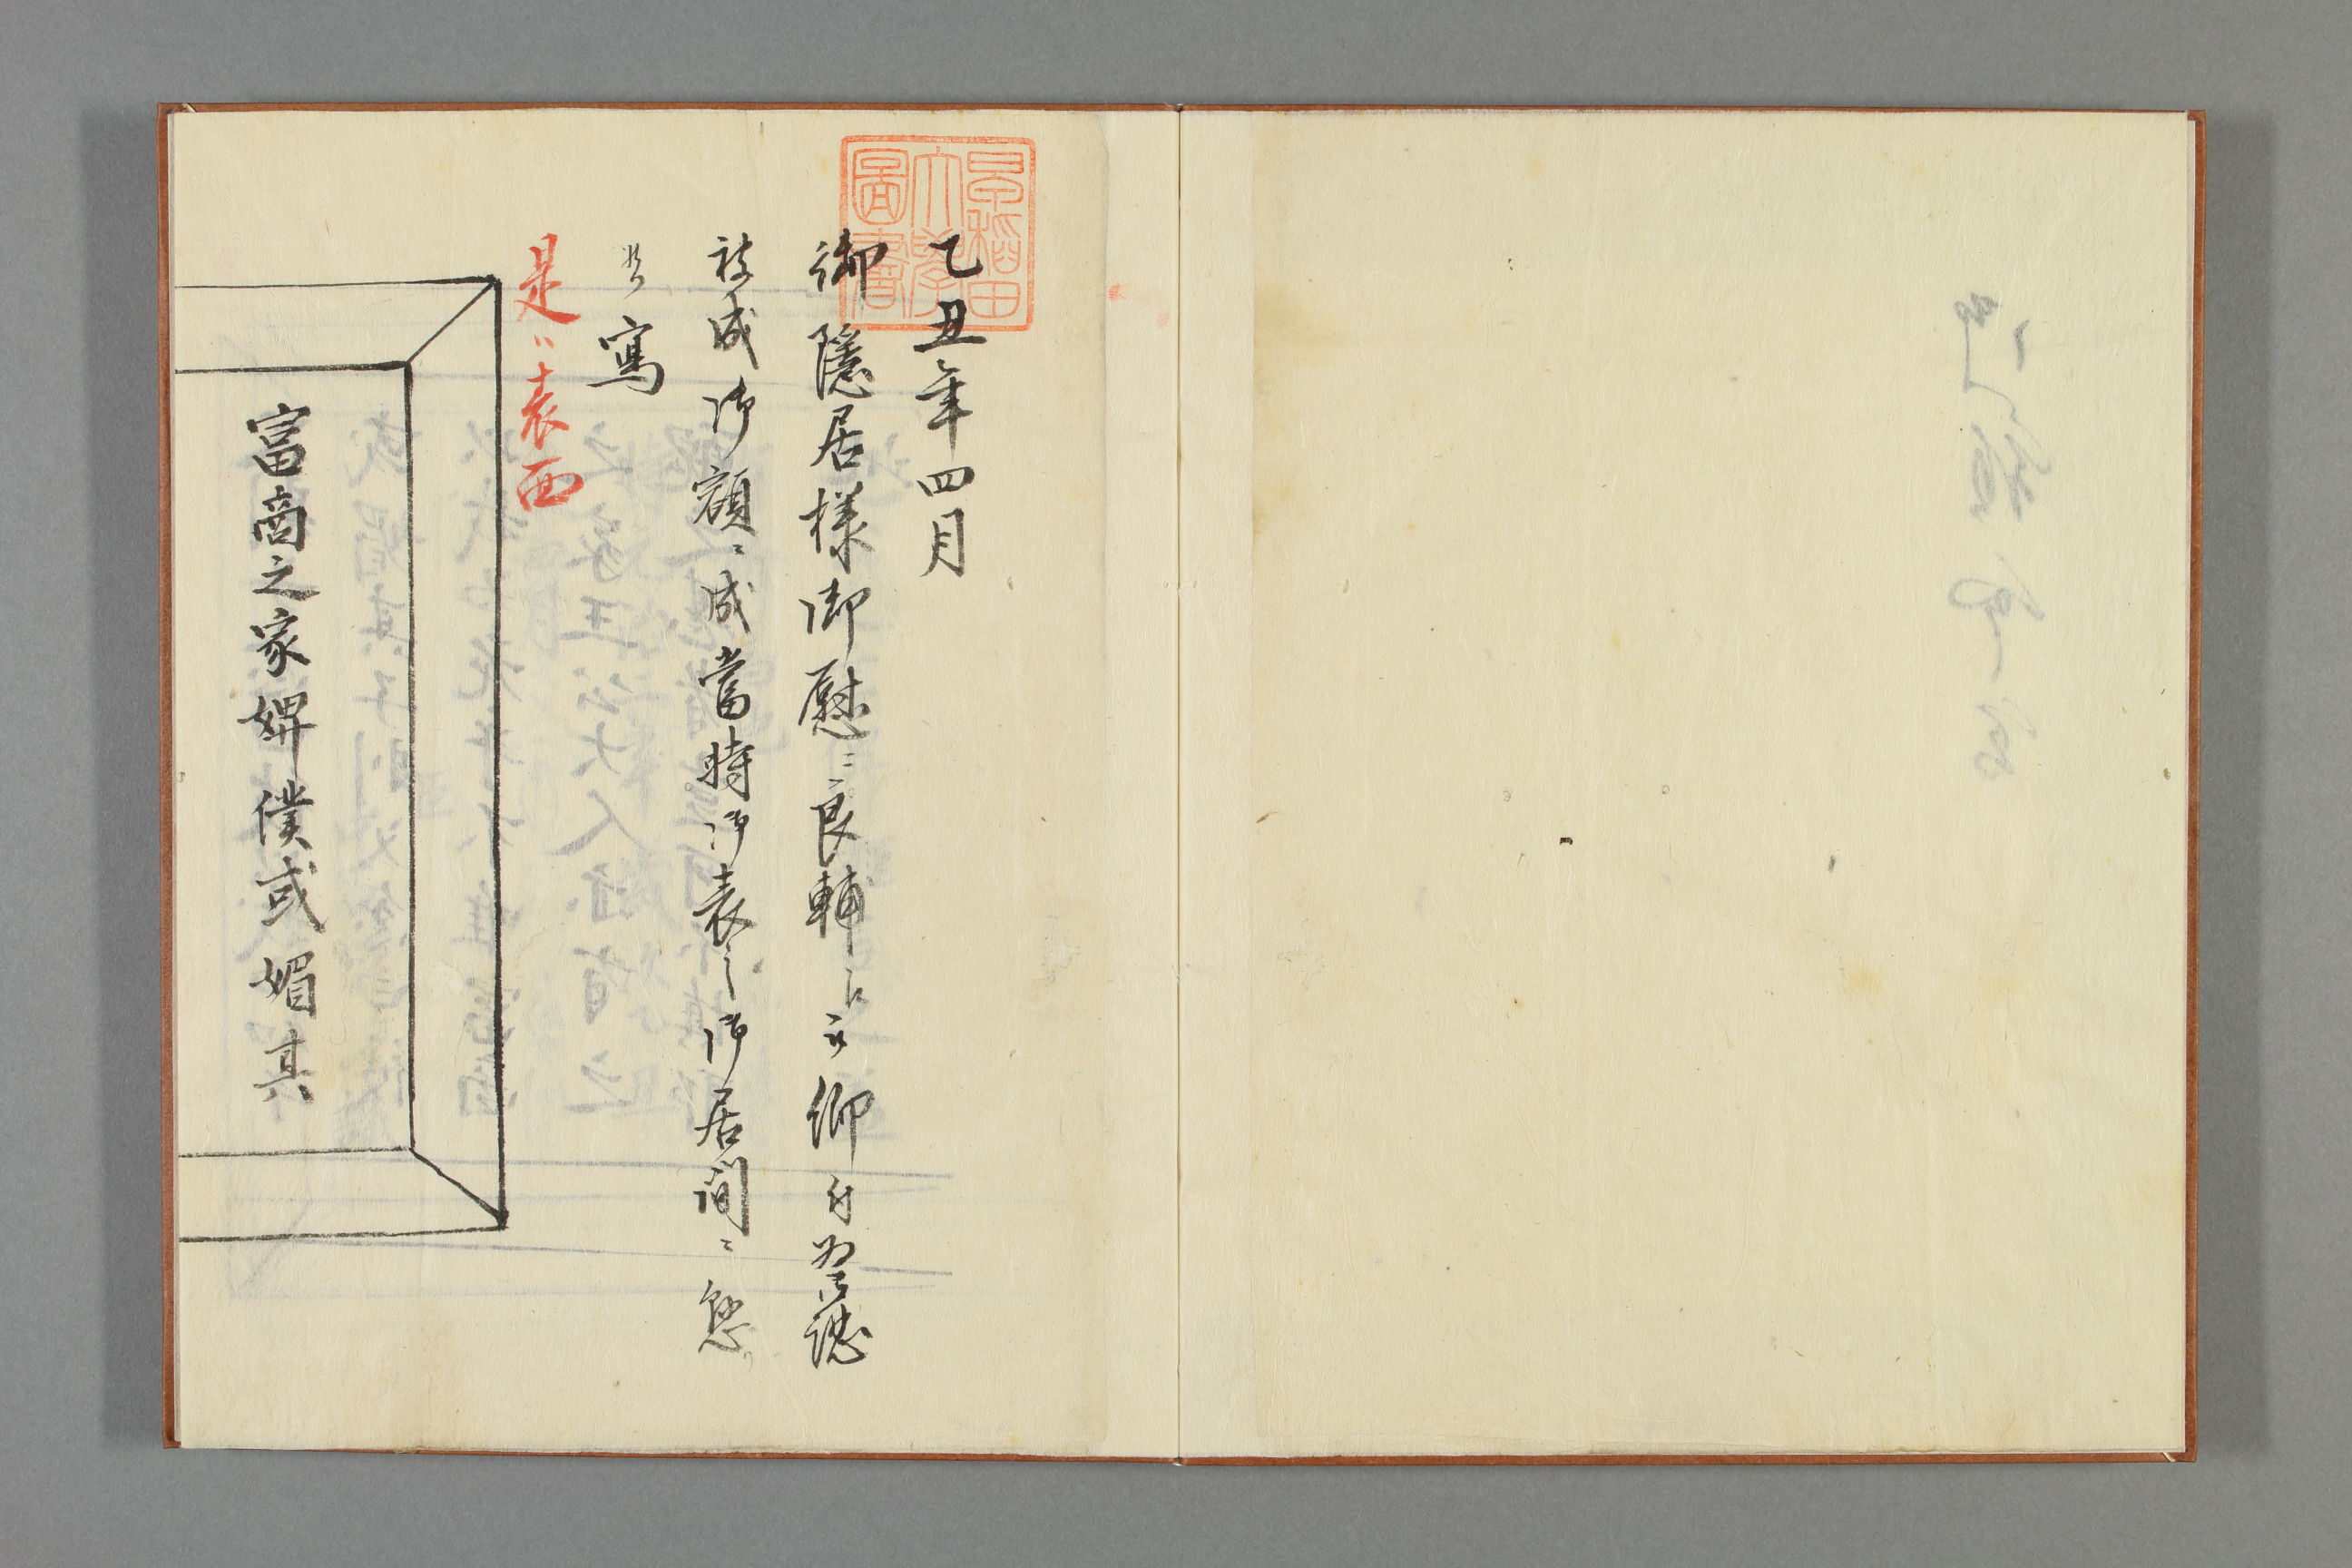 乙丑年四月
御隠居様御慰ニ良輔ニ被仰付為認
被成御額ニ成當時御表之御居間ニ懸り
其寫
是ハ表面
富商之家婢僕或媚其
早稲田大學圖書